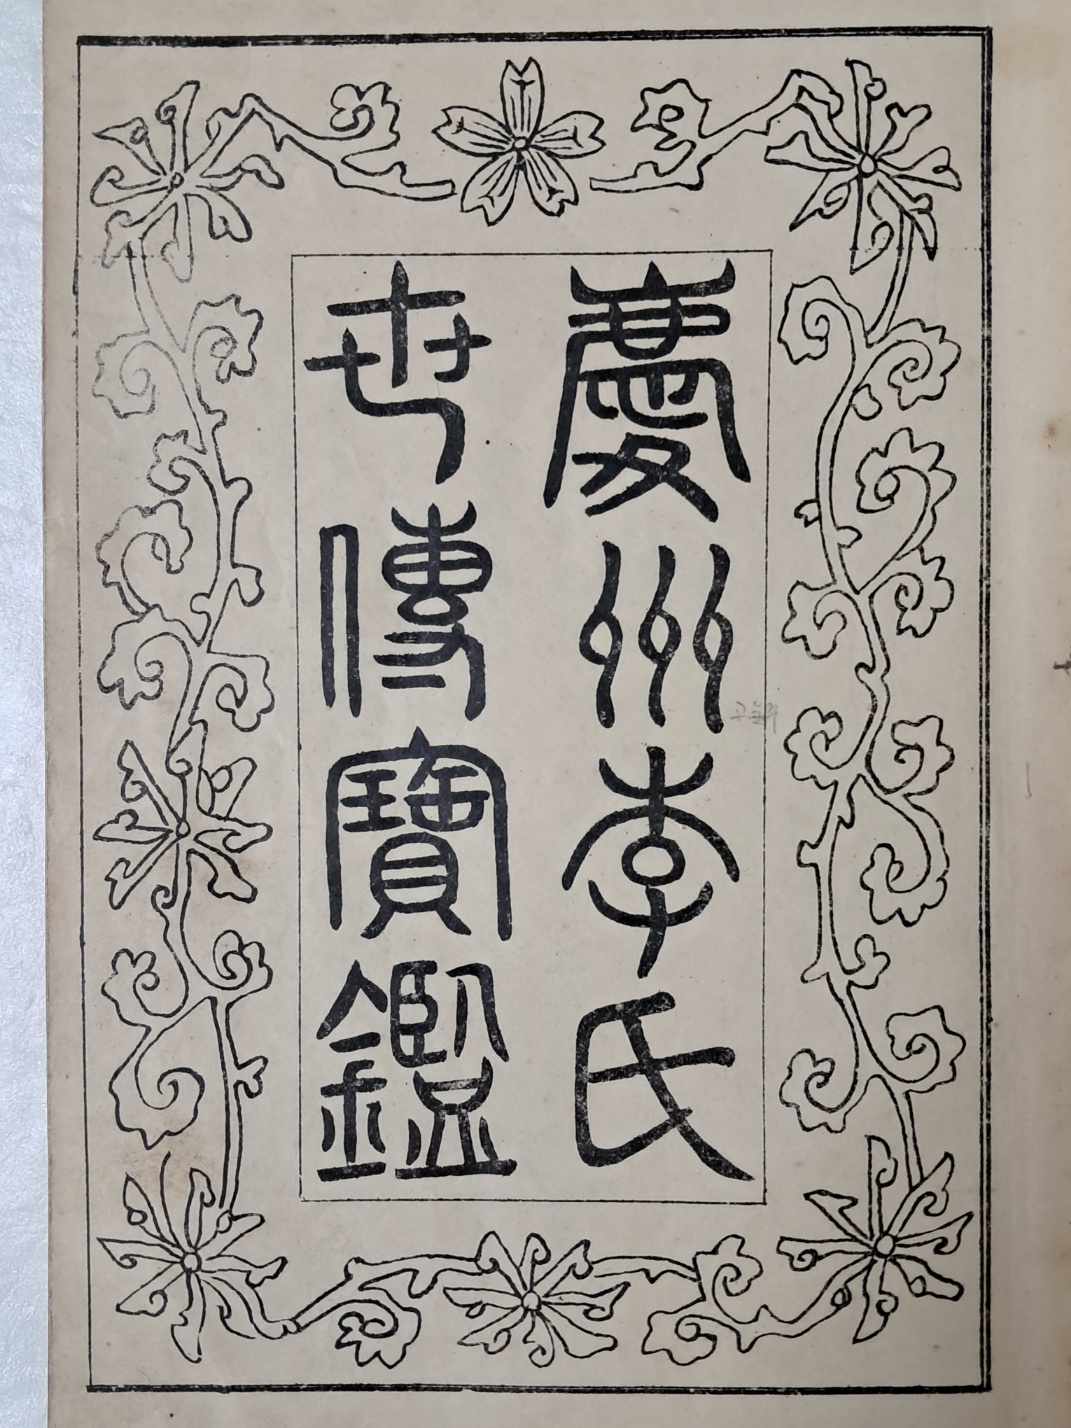 慶州李氏
世傳寶鑑